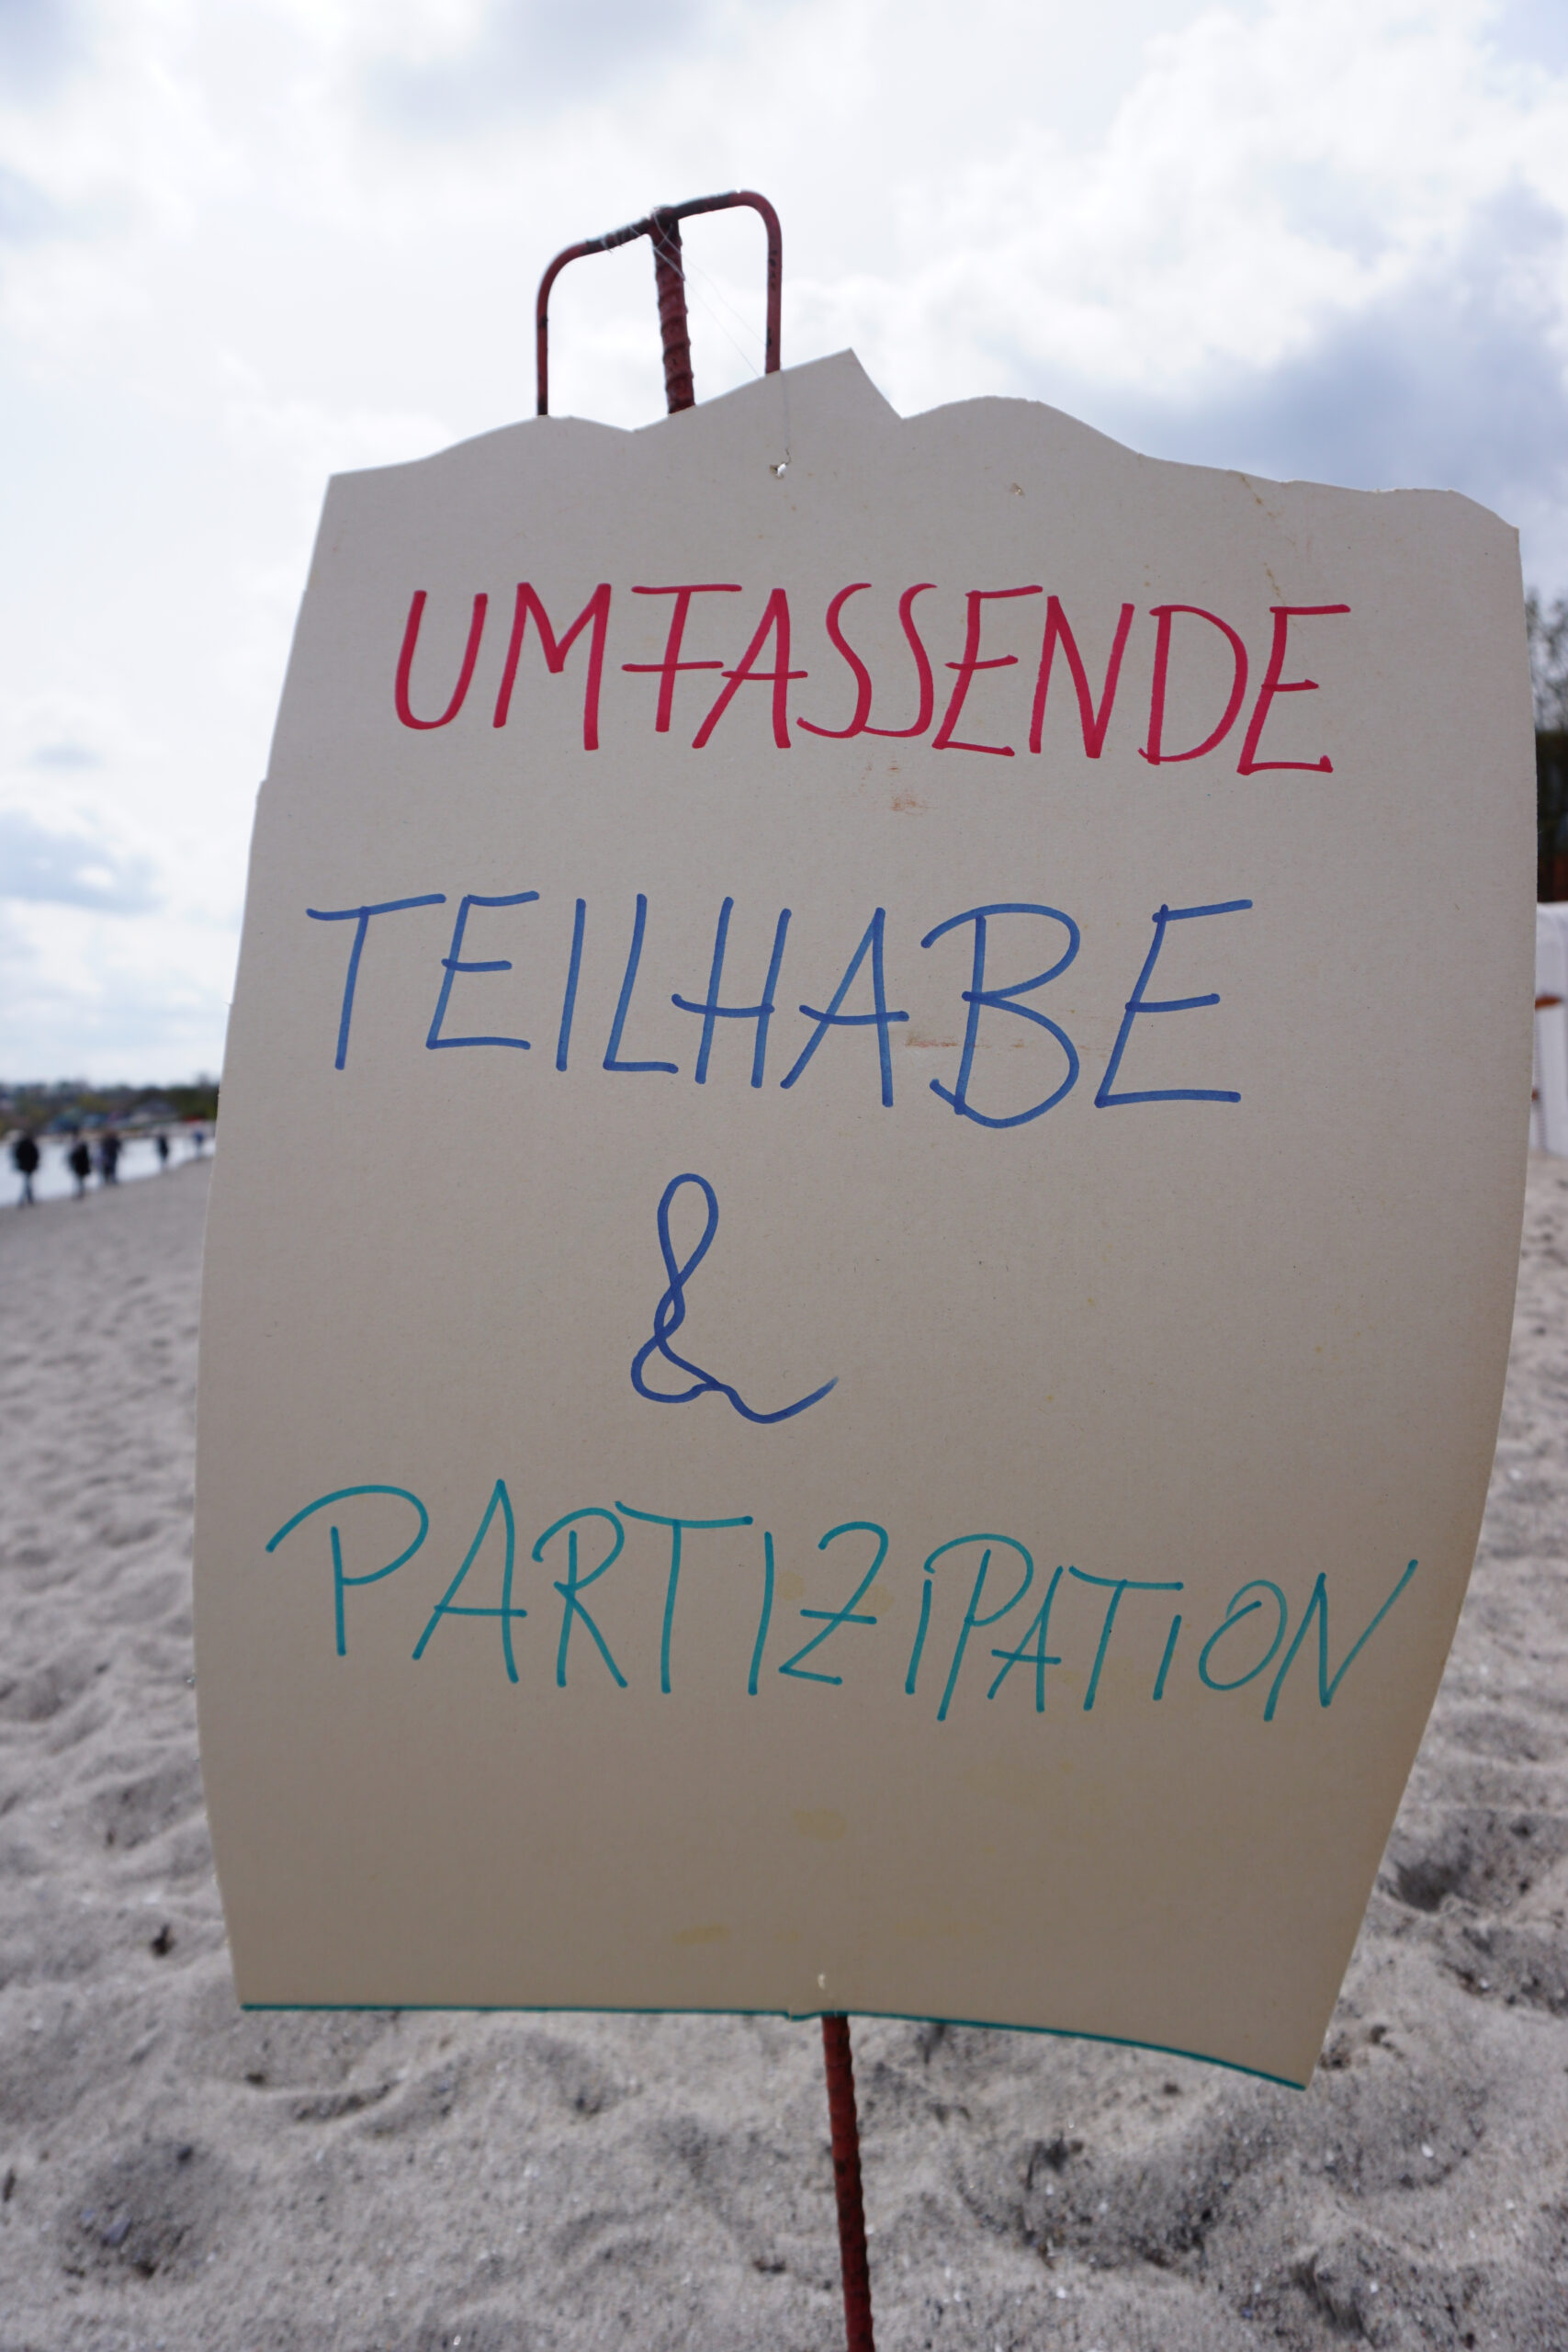 UMFASSENDE
TEILHABE
&
PARTIZIPATION